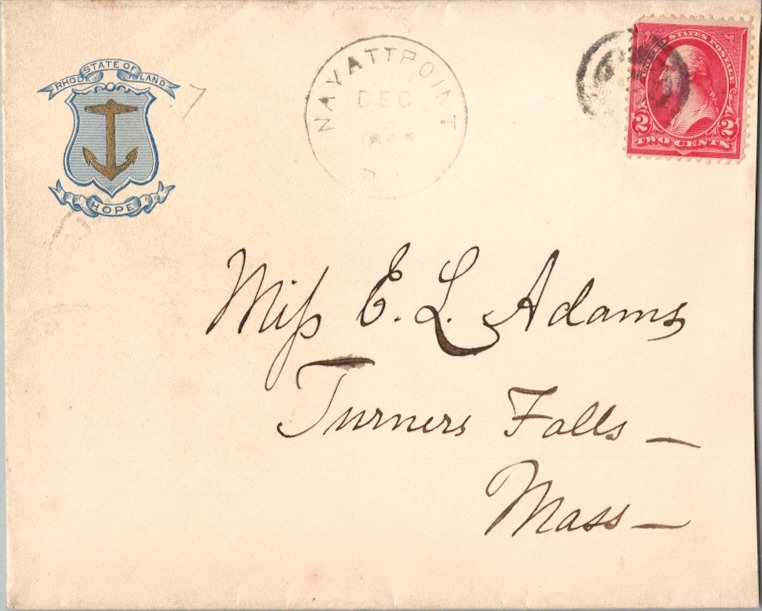 STATE OF
RHODE ISLAND
HOPE
NAYATT POINT
DEC
R.I.
UNITED STATES POSTAGE
2 2
TWO CENTS
Miss E. L. Adams
Turners Falls —
Mass —